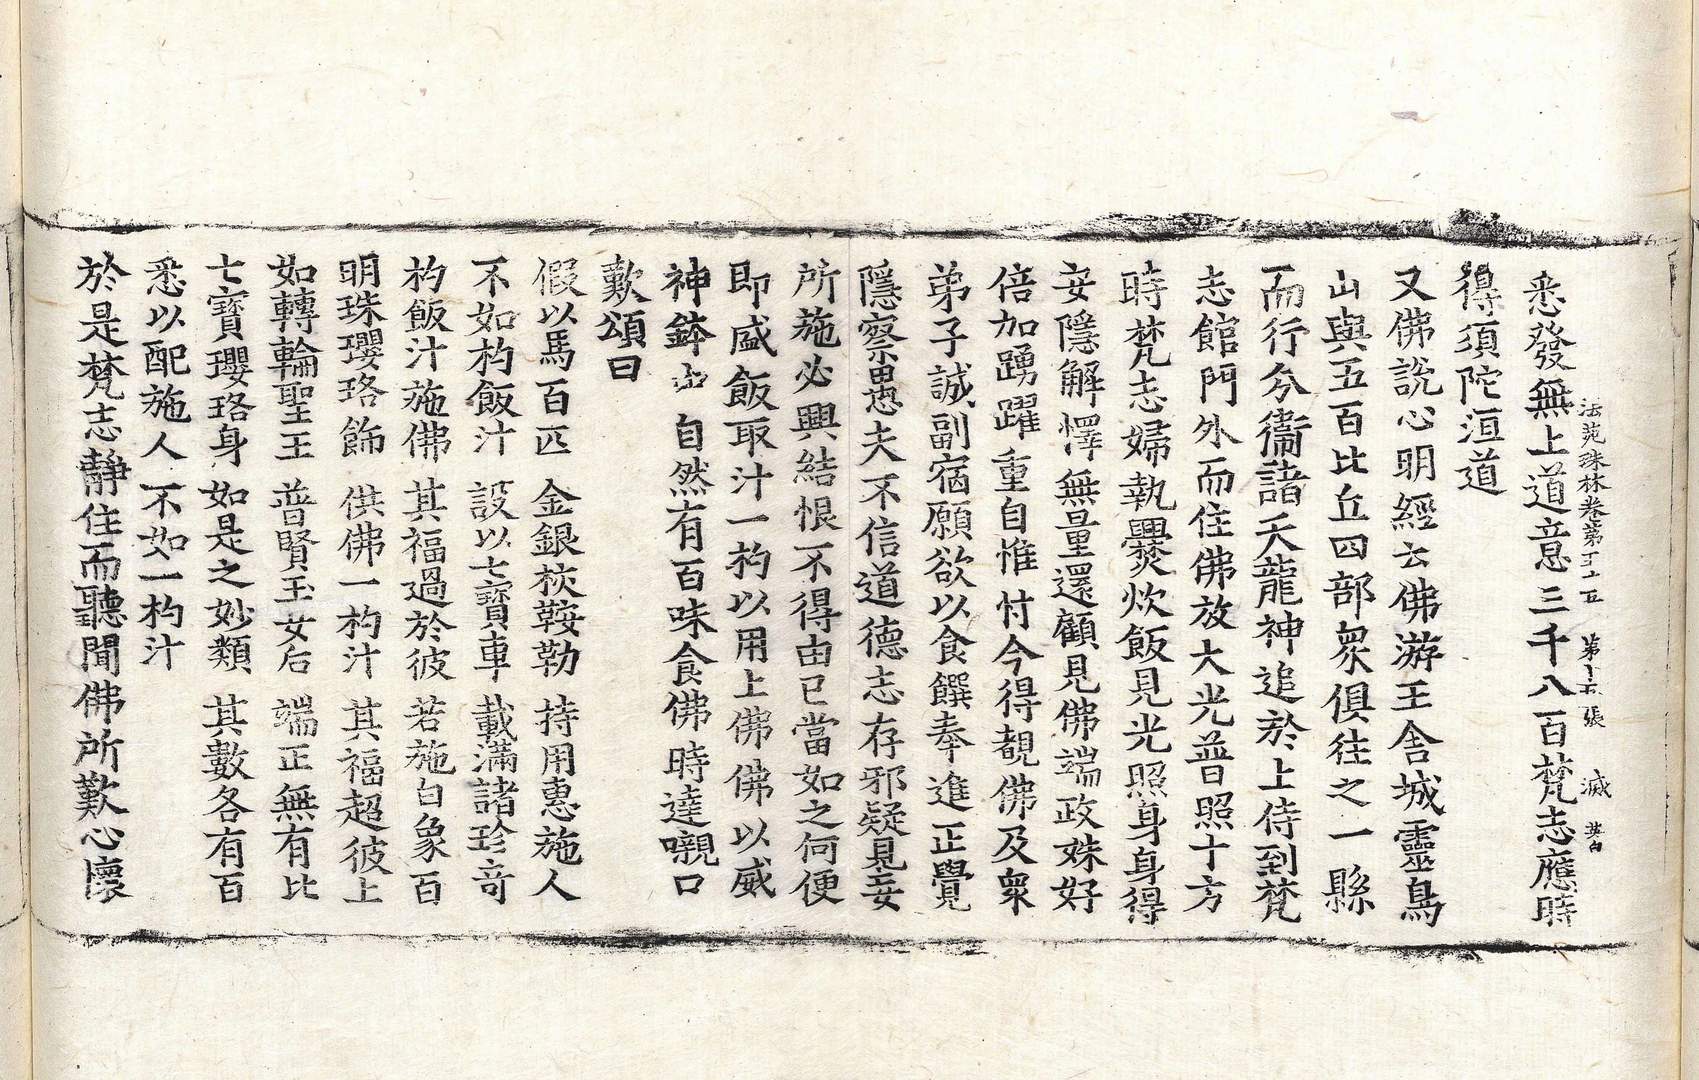 法苑珠林卷第三十五 第十五張 滅
悉發無上道意三千八百梵志應時
得須陀洹道
又佛說心明經云佛游王舍城靈鳥
山與五百比丘四部衆俱往之一縣
而行分衛諸天龍神追於上侍到梵
志館門外而住佛放大光普照十方
時梵志婦執爨炊飯見光照身身得
安隱解懌無量還顧見佛端政姝好
倍加踴躍重自惟忖今得覩佛及衆
弟子誠副宿願欲以食饌奉進正覺
隱察愚夫不信道德志存邪疑見妾
所施必興結恨不得由已當如之何便
即盛飯取汁一杓以用上佛佛以威
神鉢出自然有百味食佛時達嚫口
歎頌曰
假以馬百匹 金銀校鞍勒 持用惠施人
不如杓飯汁 設以七寶車 載滿諸珍奇
杓飯汁施佛 其福過於彼 若施白象百
明珠瓔珞飾 供佛一杓汁 其福超彼上
如轉輪聖王 普賢玉女后 端正無有比
七寶瓔珞身 如是之妙類 其數各有百
悉以配施人 不如一杓汁
於是梵志靜住而聽聞佛所歎心懷